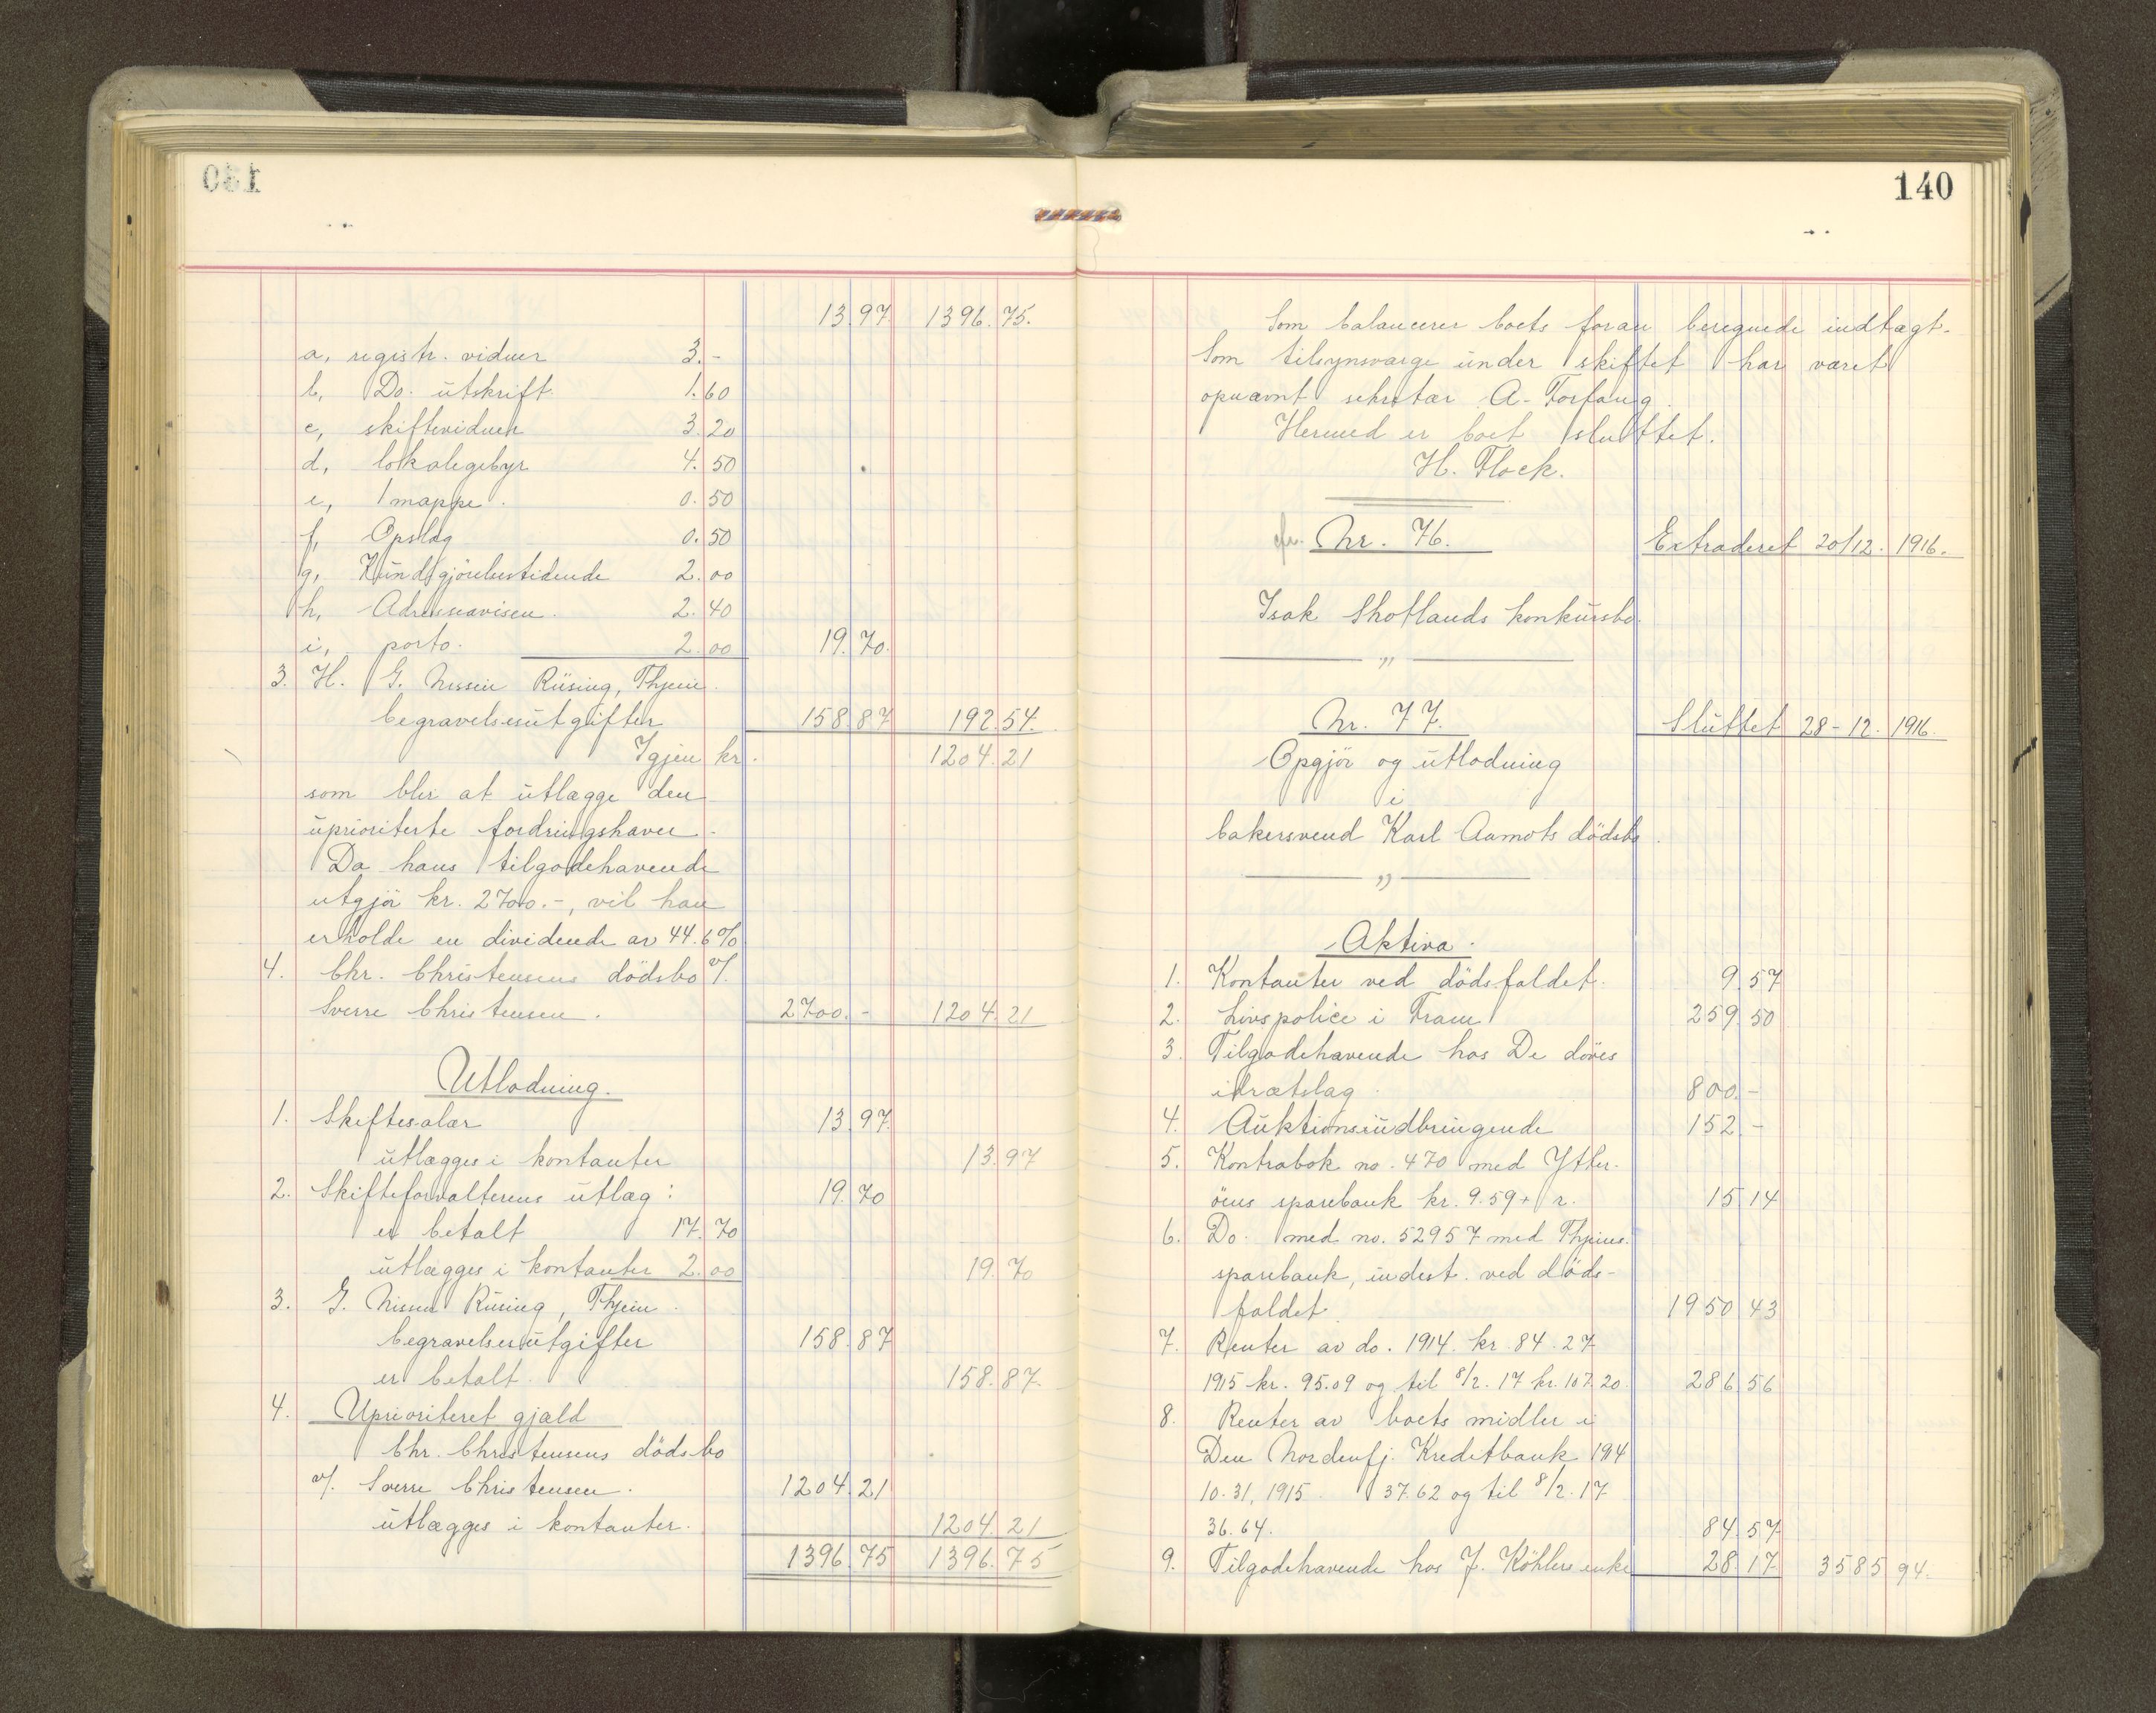 13.97 1396.75.
a, registr. vidner 3.-
b, Do. utskrift 1.60
c, skiftevidner 3.20
d, lokalegebyr 4.50
e, 1 mappe. 0.50
f, Opslag 0.50
g, Kundgjörelsestidende 2.00
h, Adresseavisen. 2.40
i, porto. 2.00 19.70.
3. H. G. Nissen Rüsing, Thjem.
begravelsesutgifter 158.87 192.54.
Igjen kr. 1204.21
som blir at utlægge den
uprioriterte fordringshaver.
Da hans tilgodehavende
utgjör kr. 2700.-, vil han
erholde en dividende av 44.6%
4. Chr. Christensens dödsbo v/.
Sverre Christensen. 2700.- 1204.21
Utlodning.
1. Skiftesalær 13.97
utlægges i kontanter 13.97
2. Skifteforvalterens utlæg: 19.70
er betalt 17.70
utlægges i kontanter 2.00 19.70
3. G. Nissen Rüsing, Thjem.
begravelsesutgifter 158.87
er betalt. 158.87.
4. Uprioriteret gjæld
Chr. Christensens dödsbo
v/. Sverre Christensen. 1204.21
utlægges i kontanter. 1204.21
1396.75 1396.75
140
Som balancerer boets foran beregnede indtægt.
Som tilsynsværge under skiftet har været
opnævnt sekretær A. Forfang.
Hermed er boet sluttet.
H. Flock.
Nr. 76. Extraderet 20/12. 1916.
Isak Shotlands konkursbo.
— " —
Nr. 77. Sluttet 28-12. 1916.
Opgjör og utlodning
i
bakersvend Karl Aamots dödsbo.
— " —
Aktiva.
1. Kontanter ved dödsfaldet. 9.57
2. Livspolice i Fram 259.50
3. Tilgodehavende hos De döves
idrætslag. 800.-
4. Auktionsindbringende 152.-
5. Kontrabok no. 470 med Ytter-
öens sparebank kr. 9.59 + r. 15.14
6. Do. med no. 52957 med Thjems.
sparebank, indest. ved döds-
faldet. 1950.43
7. Renter av do. 1914. kr. 84.27
1915 kr. 95.09 og til 8/2. 17 kr. 107.20. 286.56
8. Renter av boets midler i
Den Nordenfj. Kreditbank 1914
10.31, 1915. 37.62 og til 8/2. 17
36.64. 84.57
9. Tilgodehavende hos J. Köhlers enke 28.17 3585.94.